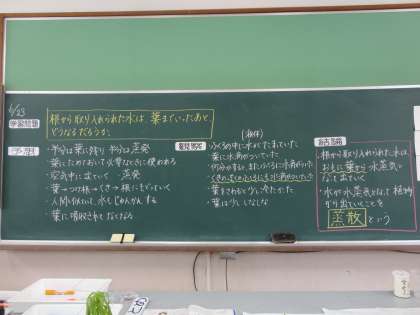 6/23
学習問題
根から取り入れられた水は、葉までいったあと、
どうなるだろうか。
予想
・半分は葉に残り 半分は蒸発
・葉にためておいて必要なときに使われる
・空気中に出ていく ・蒸発
・葉→つけ根→くき→根にもどっていく
・人間と似ていて、水もじゅんかんする
・葉に吸収されてなくなる
観察
(液体)
・ふくろの中に水がたまっていた
・葉に水滴がついていた
・くきだけのふくろにも水滴がついていた
・葉をさわると少し冷たかった
・葉は少ししなしな
結論
・根から取り入れられた水は、
おもに葉から水蒸気と
なって出ていく
・水が水蒸気となって植物
から出ていくことを
蒸散という